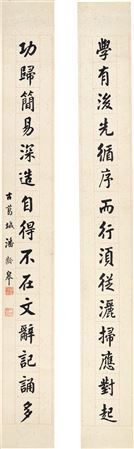 學有後先循序而行須從灑掃應對起
功歸簡易深造自得不在文辭記誦多
古葛城潘齡皋